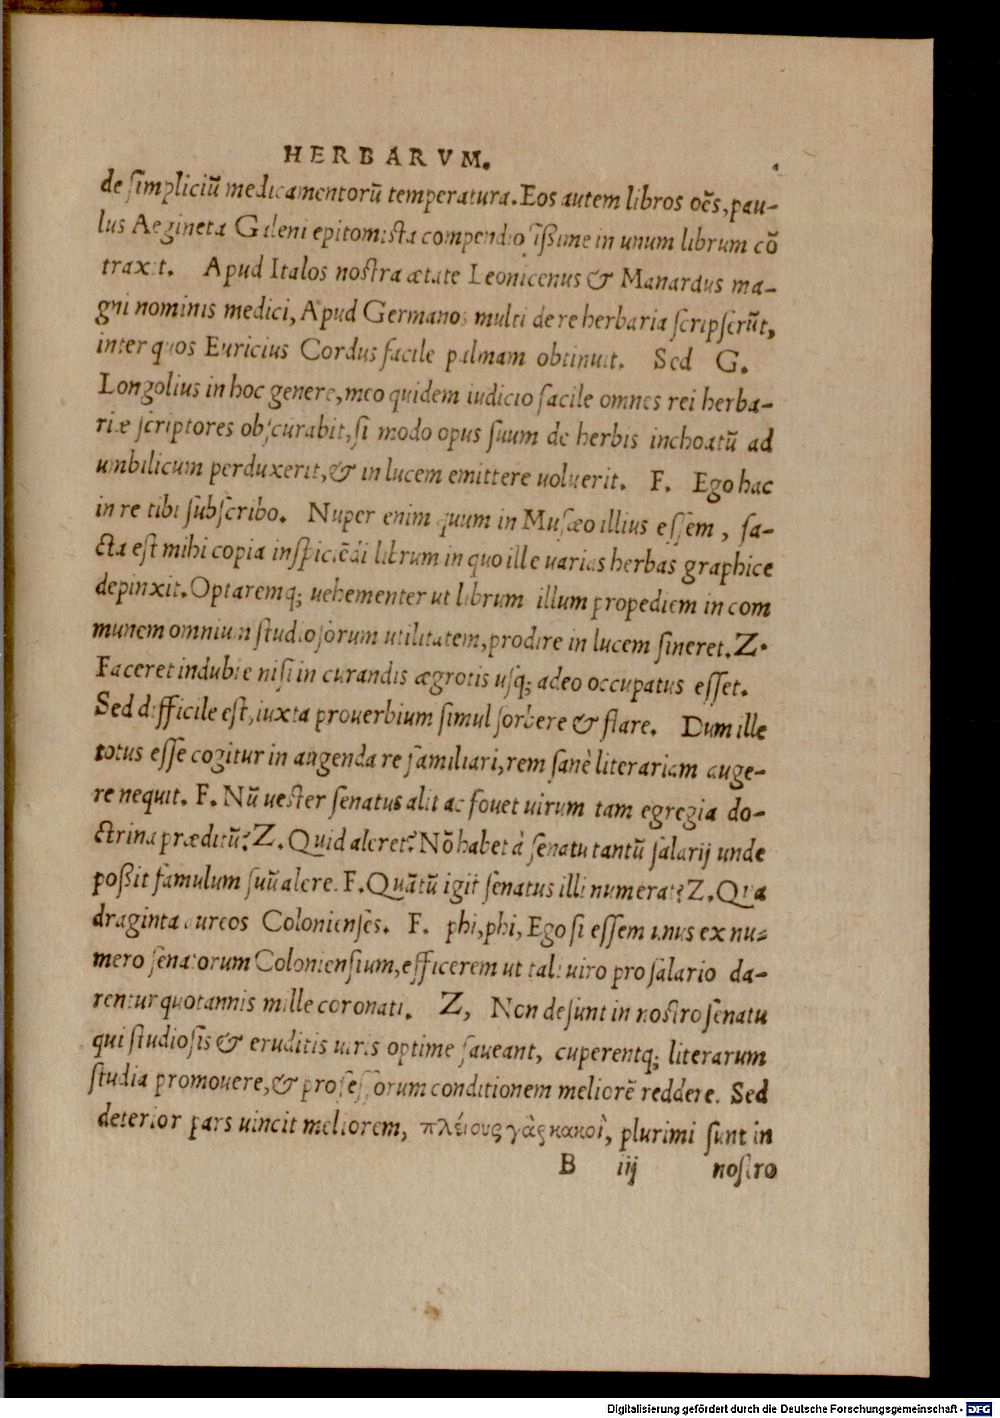 HERBARVM.
de ſimpliciũ medicamentorũ temperatura. Eos autem libros oẽs, pau-
lus Aegineta Galeni epitomiſta compendioſißime in unum librum cõ
traxit. Apud Italos noſtra ætate Leonicenus & Manardus ma-
gni nominis medici, Apud Germanos multi de re herbaria ſcripſerũt,
inter quos Euricius Cordus facile palmam obtinuit. Sed G.
Longolius in hoc genere, meo quidem iudicio facile omnes rei herba-
riæ ſcriptores obſcurabit, ſi modo opus ſuum de herbis inchoatũ ad
umbilicum perduxerit, & in lucem emittere uoluerit. F. Ego hac
in re tibi ſubſcribo. Nuper enim quum in Muſæo illius eſſem, fa-
cta eſt mihi copia inſpiciẽdi librum in quo ille varias herbas graphice
depinxit. Optaremq; uehementer ut librum illum propediem in com
munem omnium ſtudioſorum utilitatem, prodire in lucem ſineret. Z.
Faceret indubie niſi in curandis ægrotis uſq; adeo occupatus eſſet.
Sed difficile eſt, iuxta prouerbium ſimul ſorbere & flare. Dum ille
totus eſſe cogitur in augenda re familiari, rem ſanè literariam auge-
re nequit. F. Nũ ueſter ſenatus alit ac fouet uirum tam egregia do-
ctrina præditũ? Z. Quid aleret? Nõ habet à ſenatu tantũ ſalarij unde
poßit famulum ſuũ alere. F. Quãtũ igit ſenatus illi numerat? Z. Qua
draginta aureos Colonienſes. F. phi, phi, Ego ſi eſſem unus ex nu-
mero ſenatorum Colonienſium, efficerem ut tali uiro pro ſalario da-
rentur quotannis mille coronati. Z, Non deſunt in noſtro ſenatu
qui ſtudioſis & eruditis uiris optime faueant, cuperentq; literarum
ſtudia promouere, & profeſſorum conditionem meliorẽ reddere. Sed
deterior pars uincit meliorem, πλέιους γὰρ κακοὶ, plurimi ſunt in
B iij noſtro
Digitalisierung gefördert durch die Deutsche Forschungsgemeinschaft - DFG